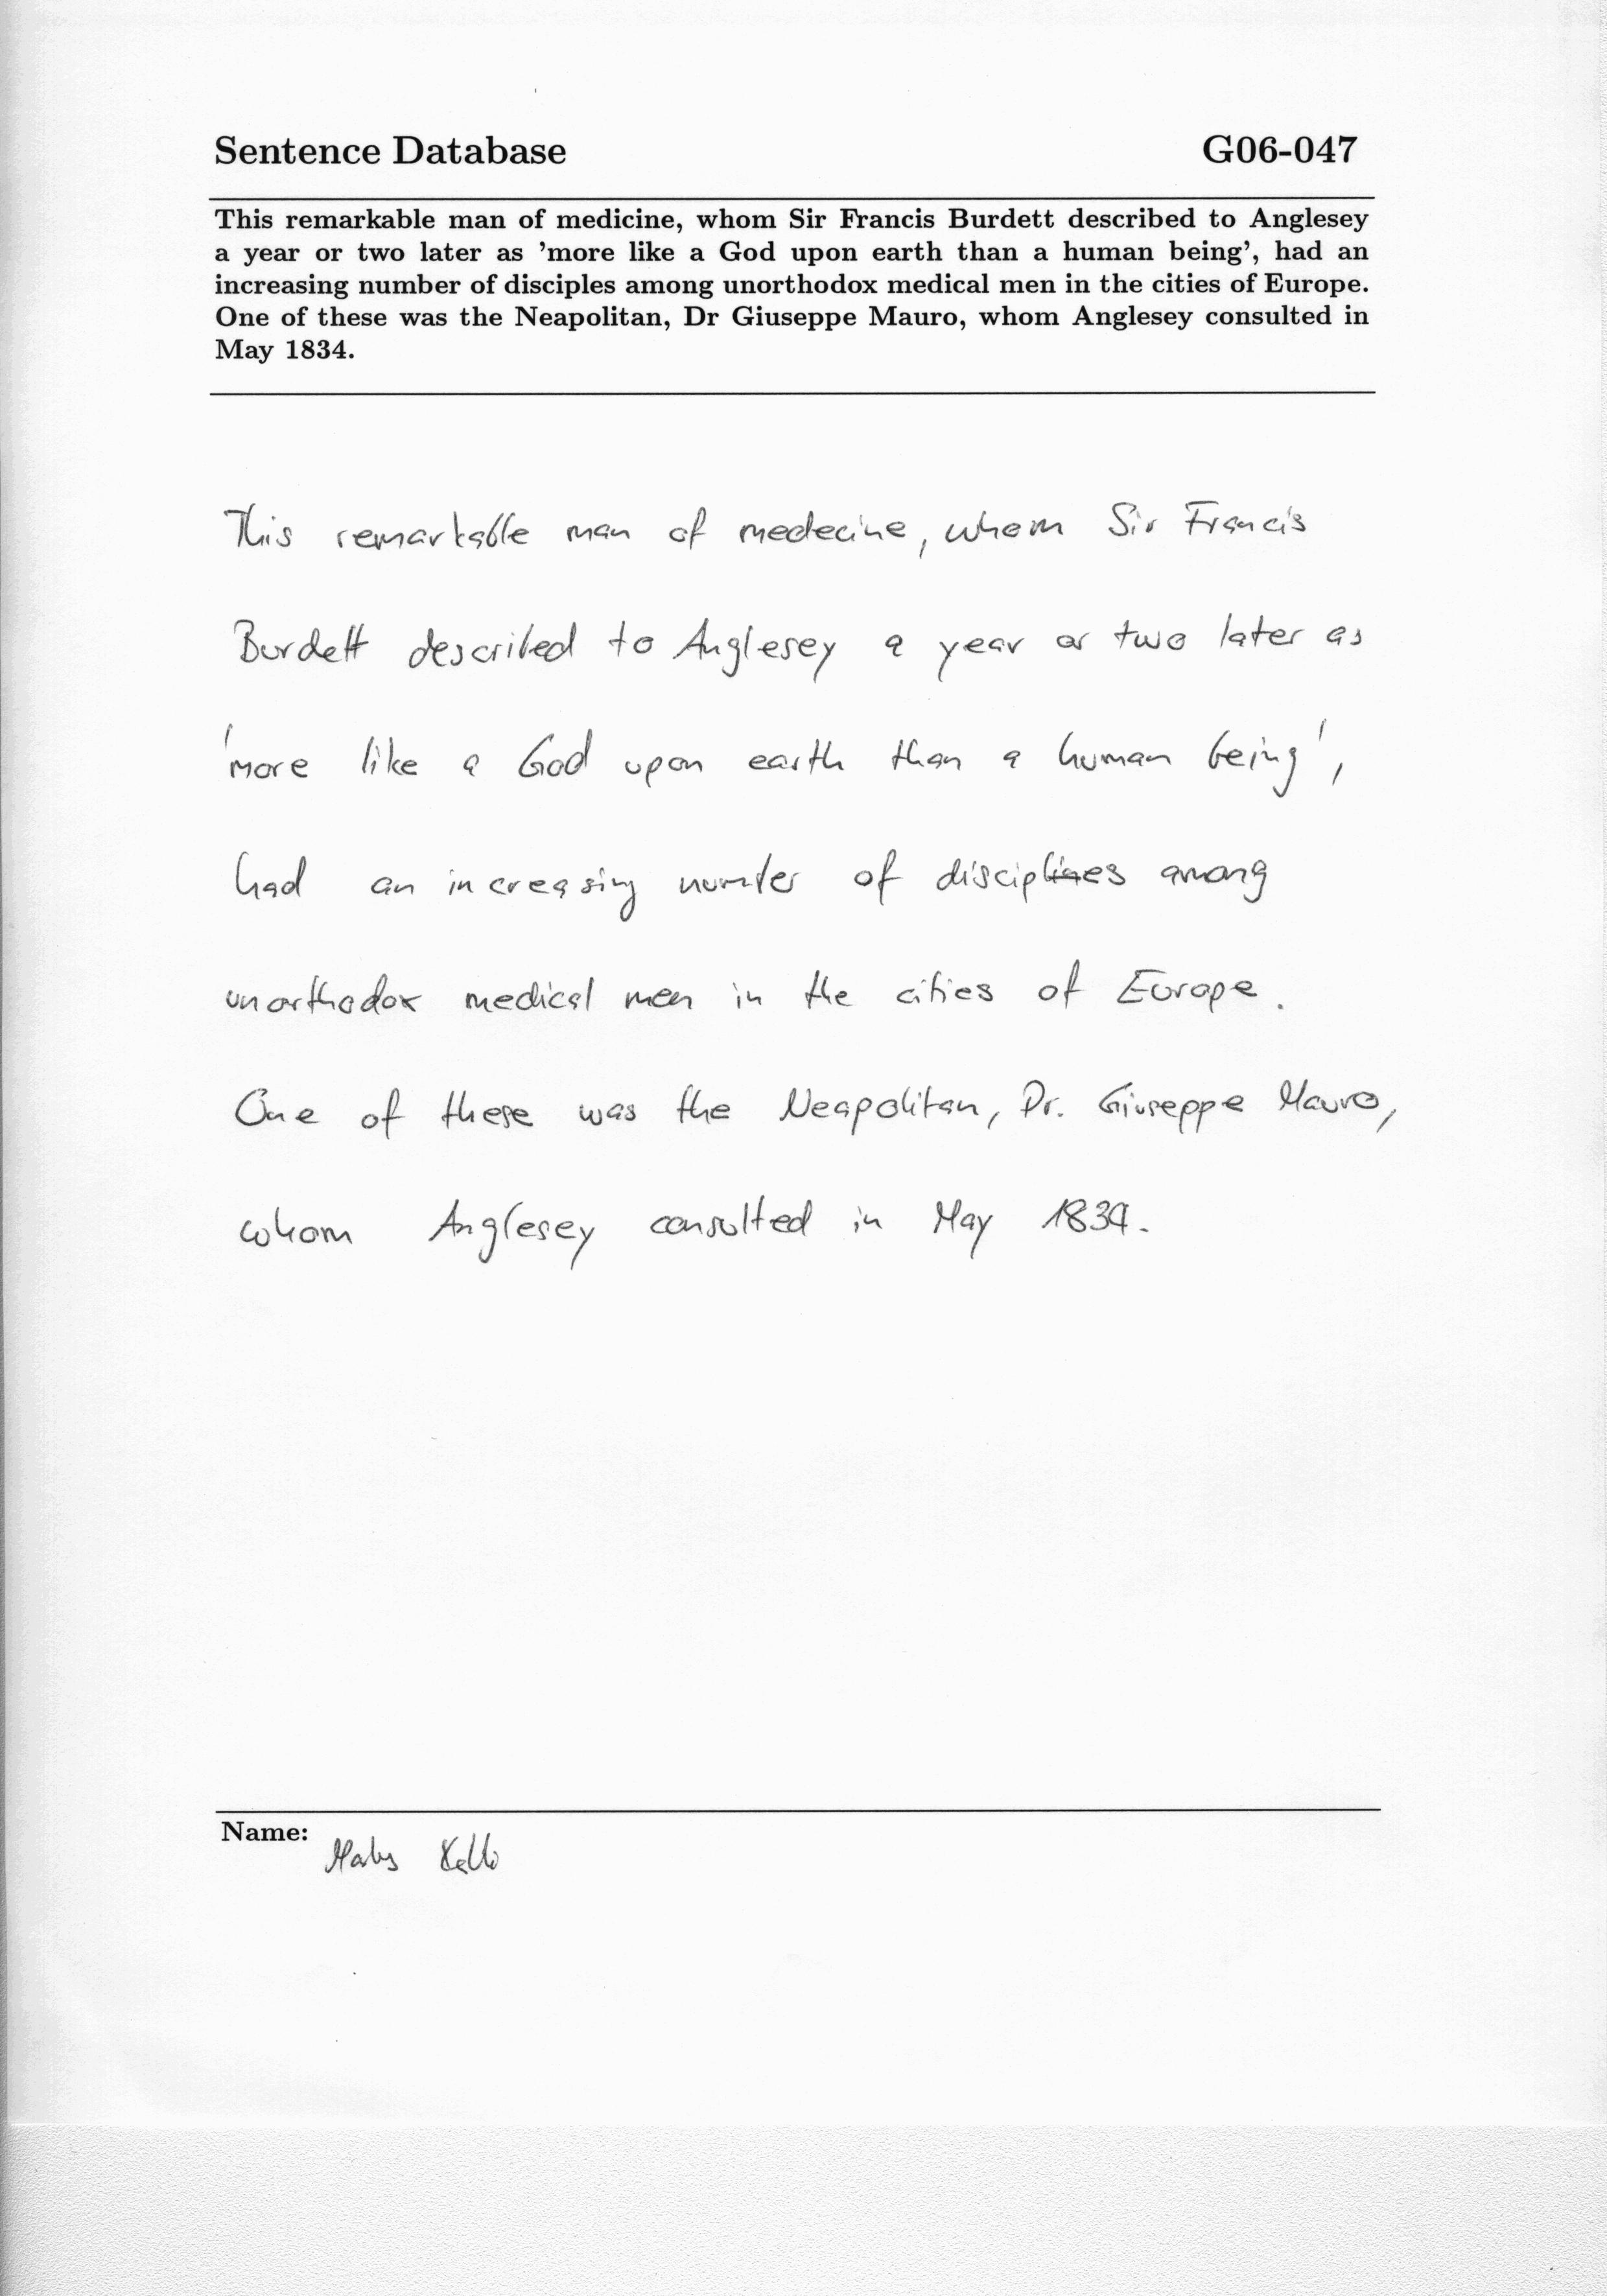 Sentence Database G06-047
This remarkable man of medicine, whom Sir Francis Burdett described to Anglesey
a year or two later as ’more like a God upon earth than a human being’, had an
increasing number of disciples among unorthodox medical men in the cities of Europe.
One of these was the Neapolitan, Dr Giuseppe Mauro, whom Anglesey consulted in
May 1834.
This remarkable man of medecine, whom Sir Francis
Burdett described to Anglesey a year or two later as
'more like a God upon earth than a human being',
had an increasing number of disciples among
unorthodox medical men in the cities of Europe.
One of these was the Neapolitan, Dr. Giuseppe Mauro,
whom Anglesey consulted in May 1834.
Name: